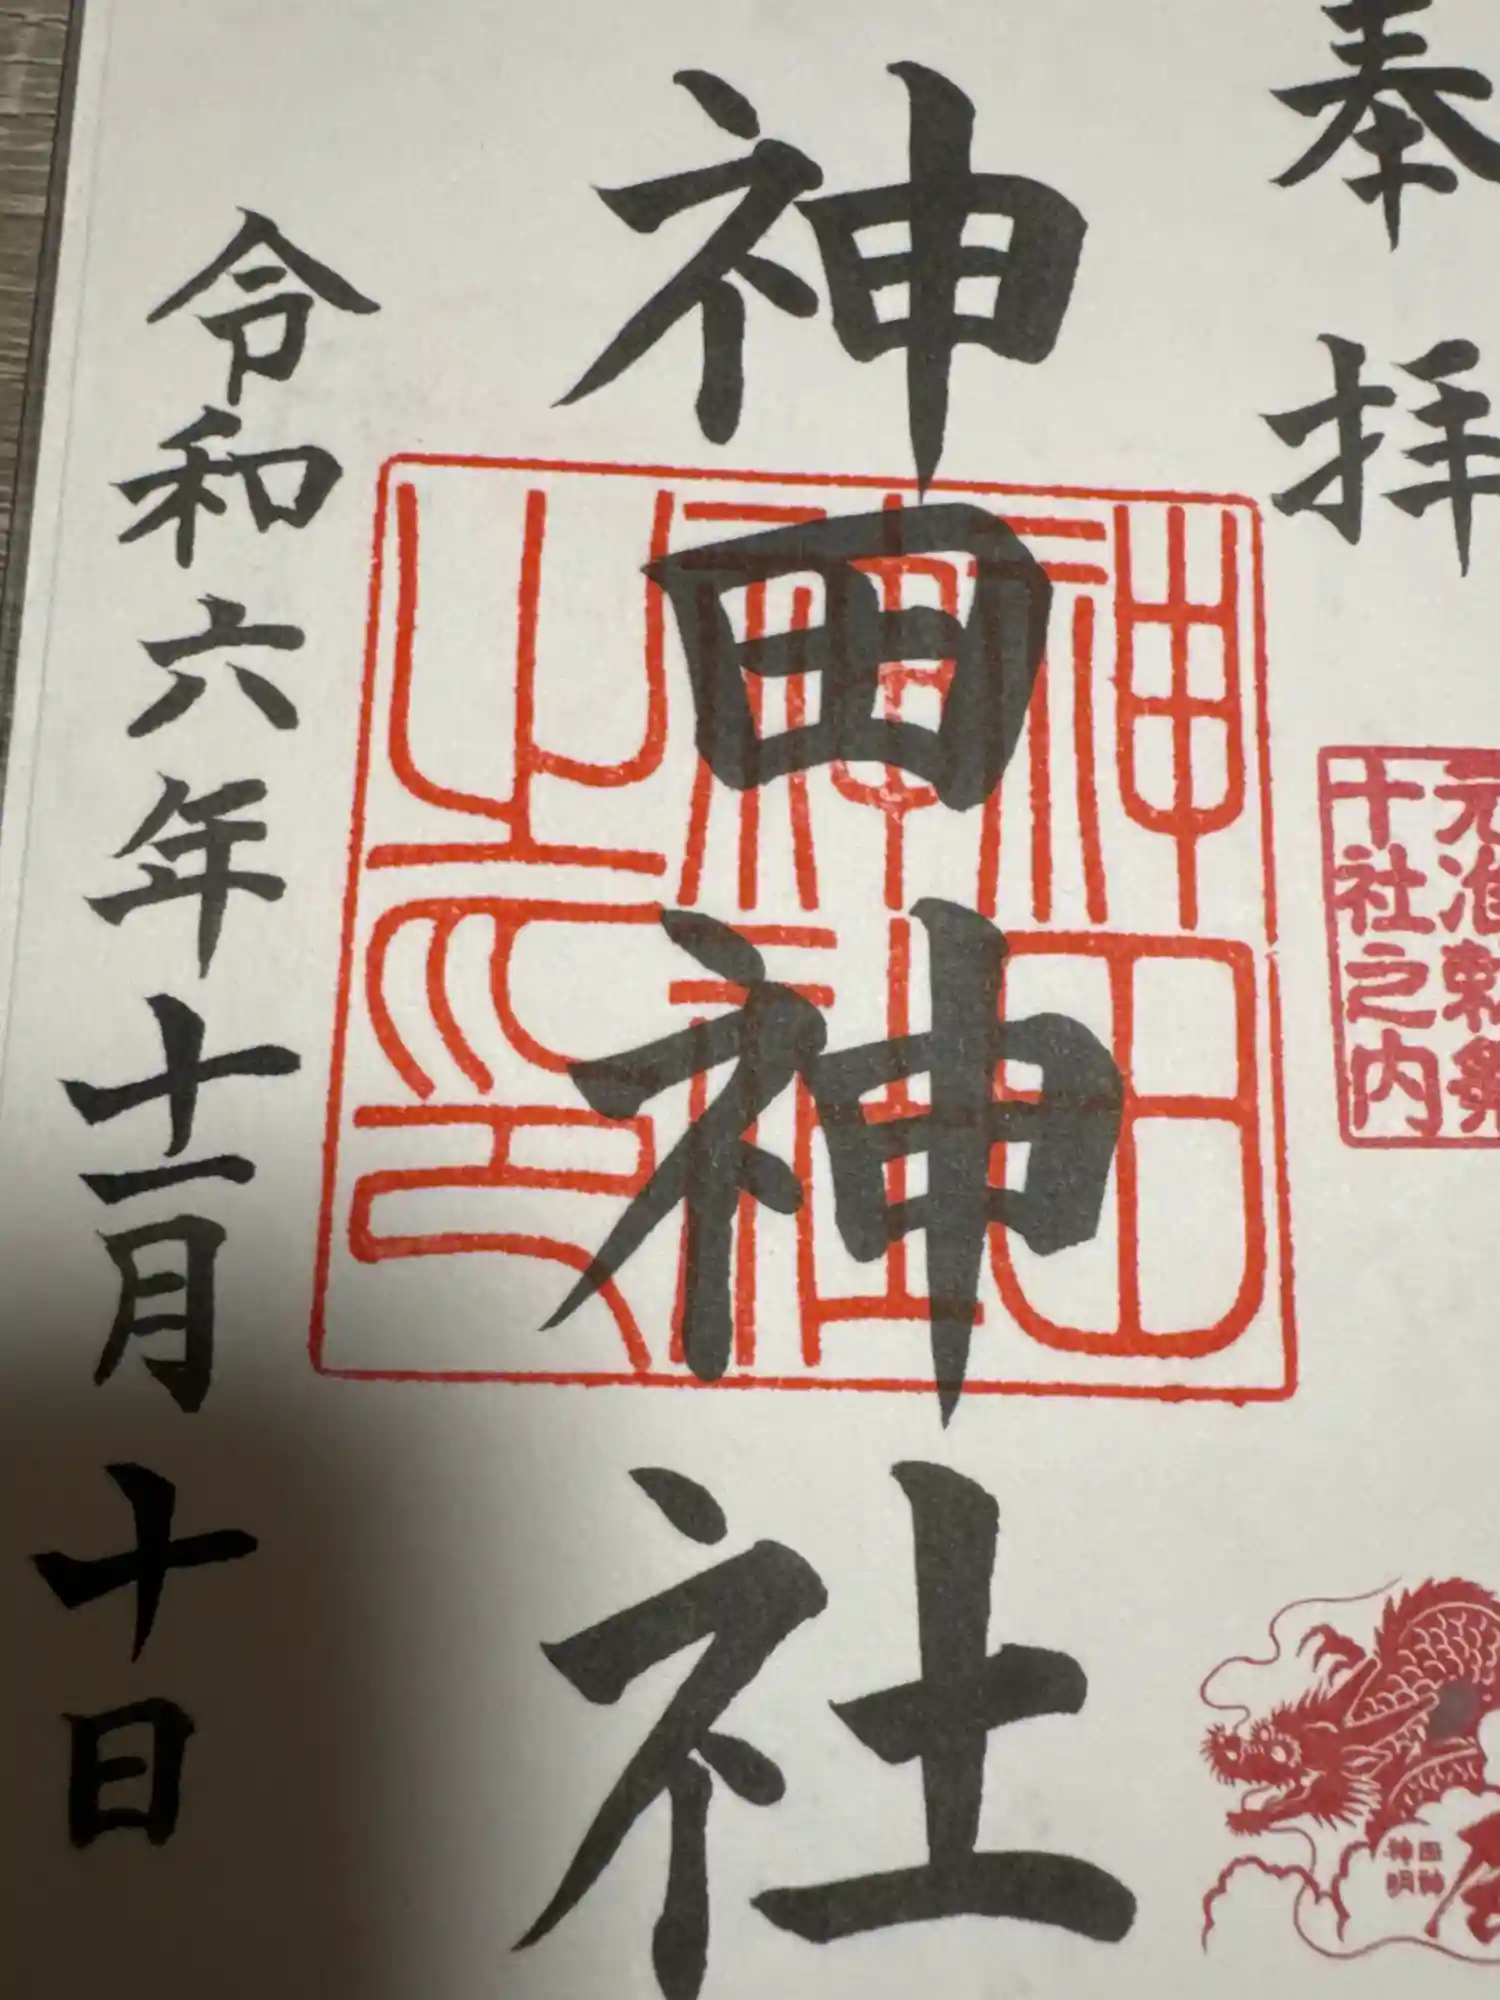 奉拝
元准勅祭
十社之内
神田神社
神田神社之印
令和六年十一月十日